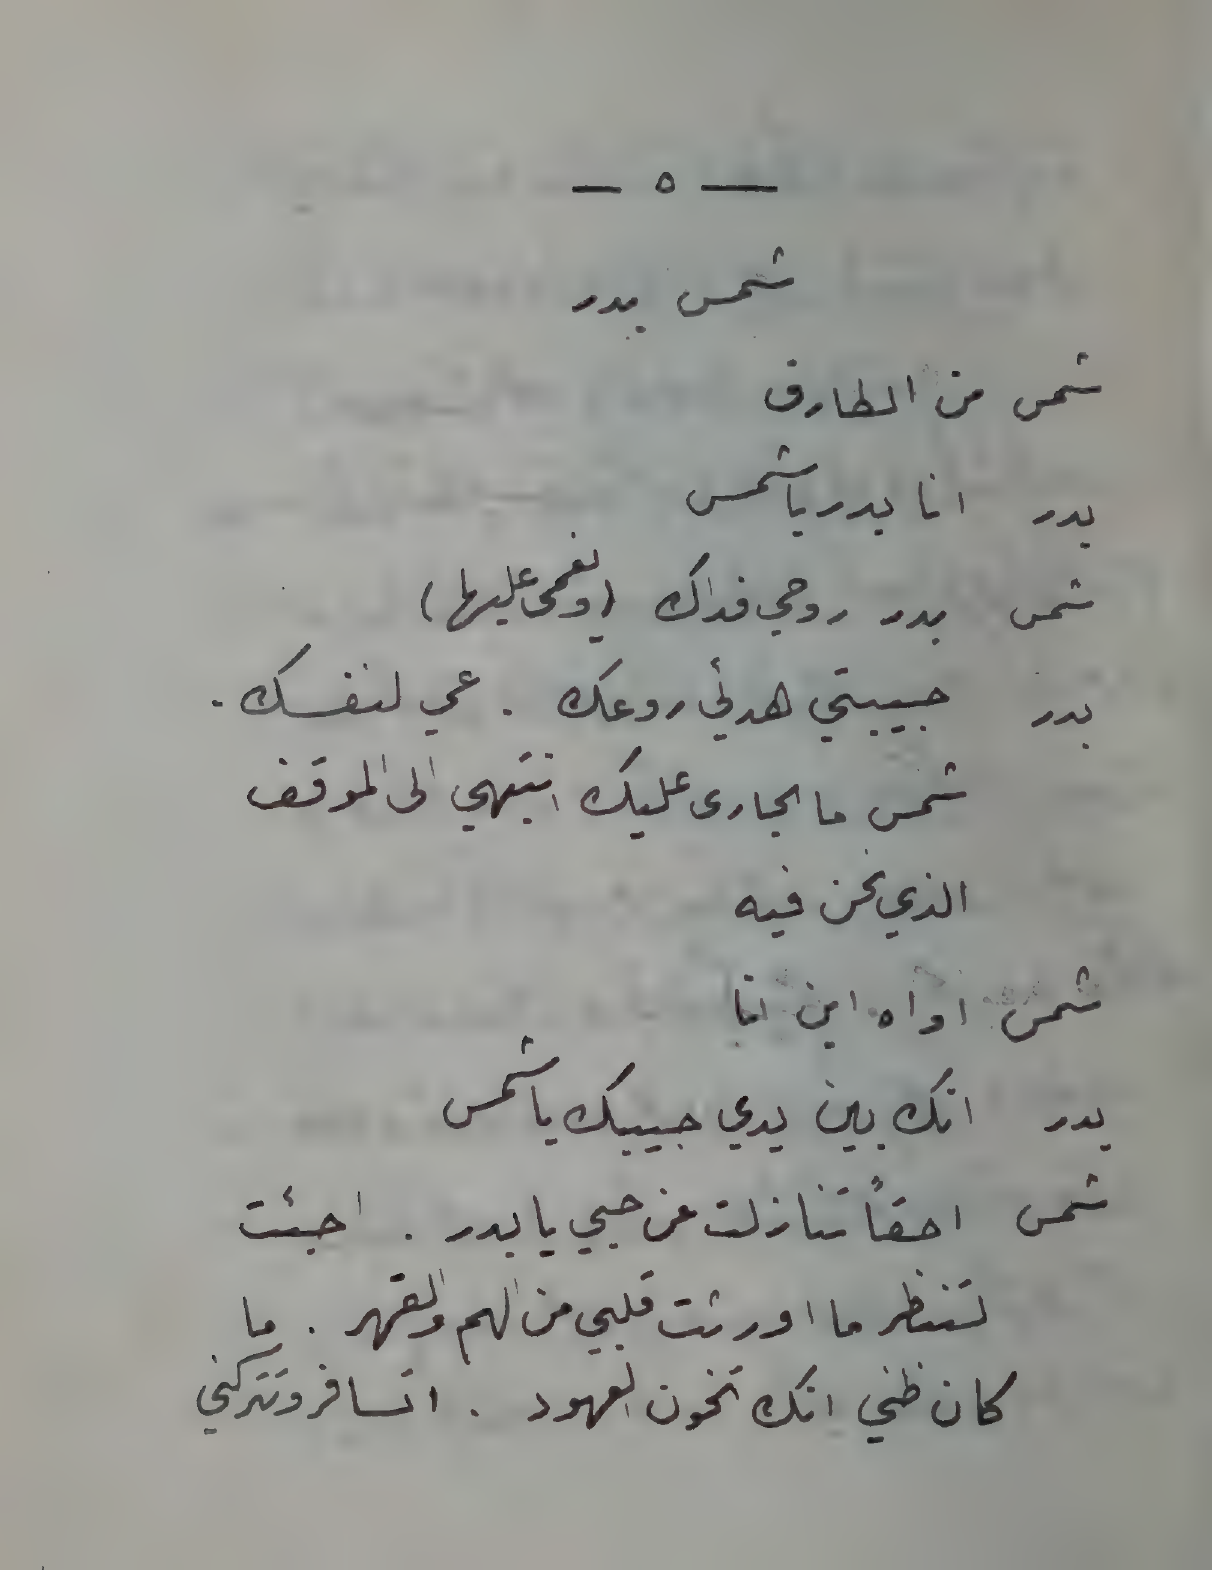 — ٥ —
شمس بدر
شمس من الطارق
بدر انا بدر يا شمس
شمس بدر روحي فداك (ويغمى عليها)
بدر حبيبتي هدئي روعك . عي لنفسك .
شمس ما الجارى عليك انتبهي الى الموقف
الذي نحن فيه
شمس اواه اين انا
بدر انك بين يدي حبيبك يا شمس
شمس احقاً تنازلت عن حبي يا بدر . اجئت
لتنظر ما اورثت قلبي من الهم والقهر . ما
كان ظني انك تخون العهود . اتسافر وتتركني